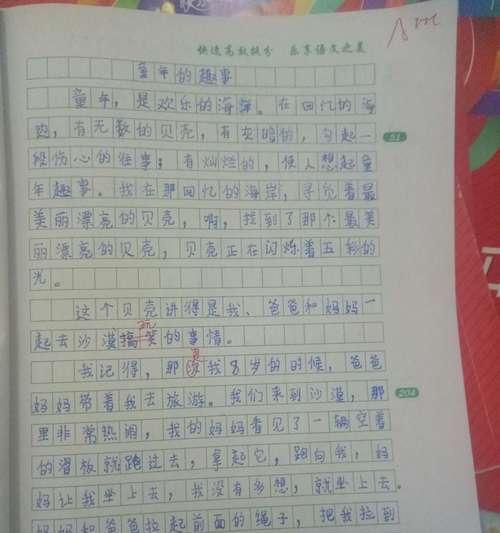 快速高效提分 乐享语文之美
童年的趣事
童年，是欢乐的海洋。在回忆的海
边，有无数的贝壳，有灰暗的，勾起一
51
段伤心的往事；有灿烂的，使人想起童
年趣事。我在那回忆的海岸，寻觅着最
美丽漂亮的贝壳，啊，找到了那个最美
丽漂亮的贝壳，贝壳正在闪烁着五彩的
光。
这个贝壳讲得是我、爸爸和妈妈一
玩
起去沙漠搞笑的事情。
夏
我记得，那 我8岁的的时候，爸爸
妈妈带着我去旅游。我们来到沙漠，那
204
里非常热闹，我的妈妈看见了一辆空着
的滑板就跑过去，拿起它，跑向我，妈
妈让我坐上去，我没有多想，就坐上去。
妈妈和爸爸拉起前面的绳子，把我拉到